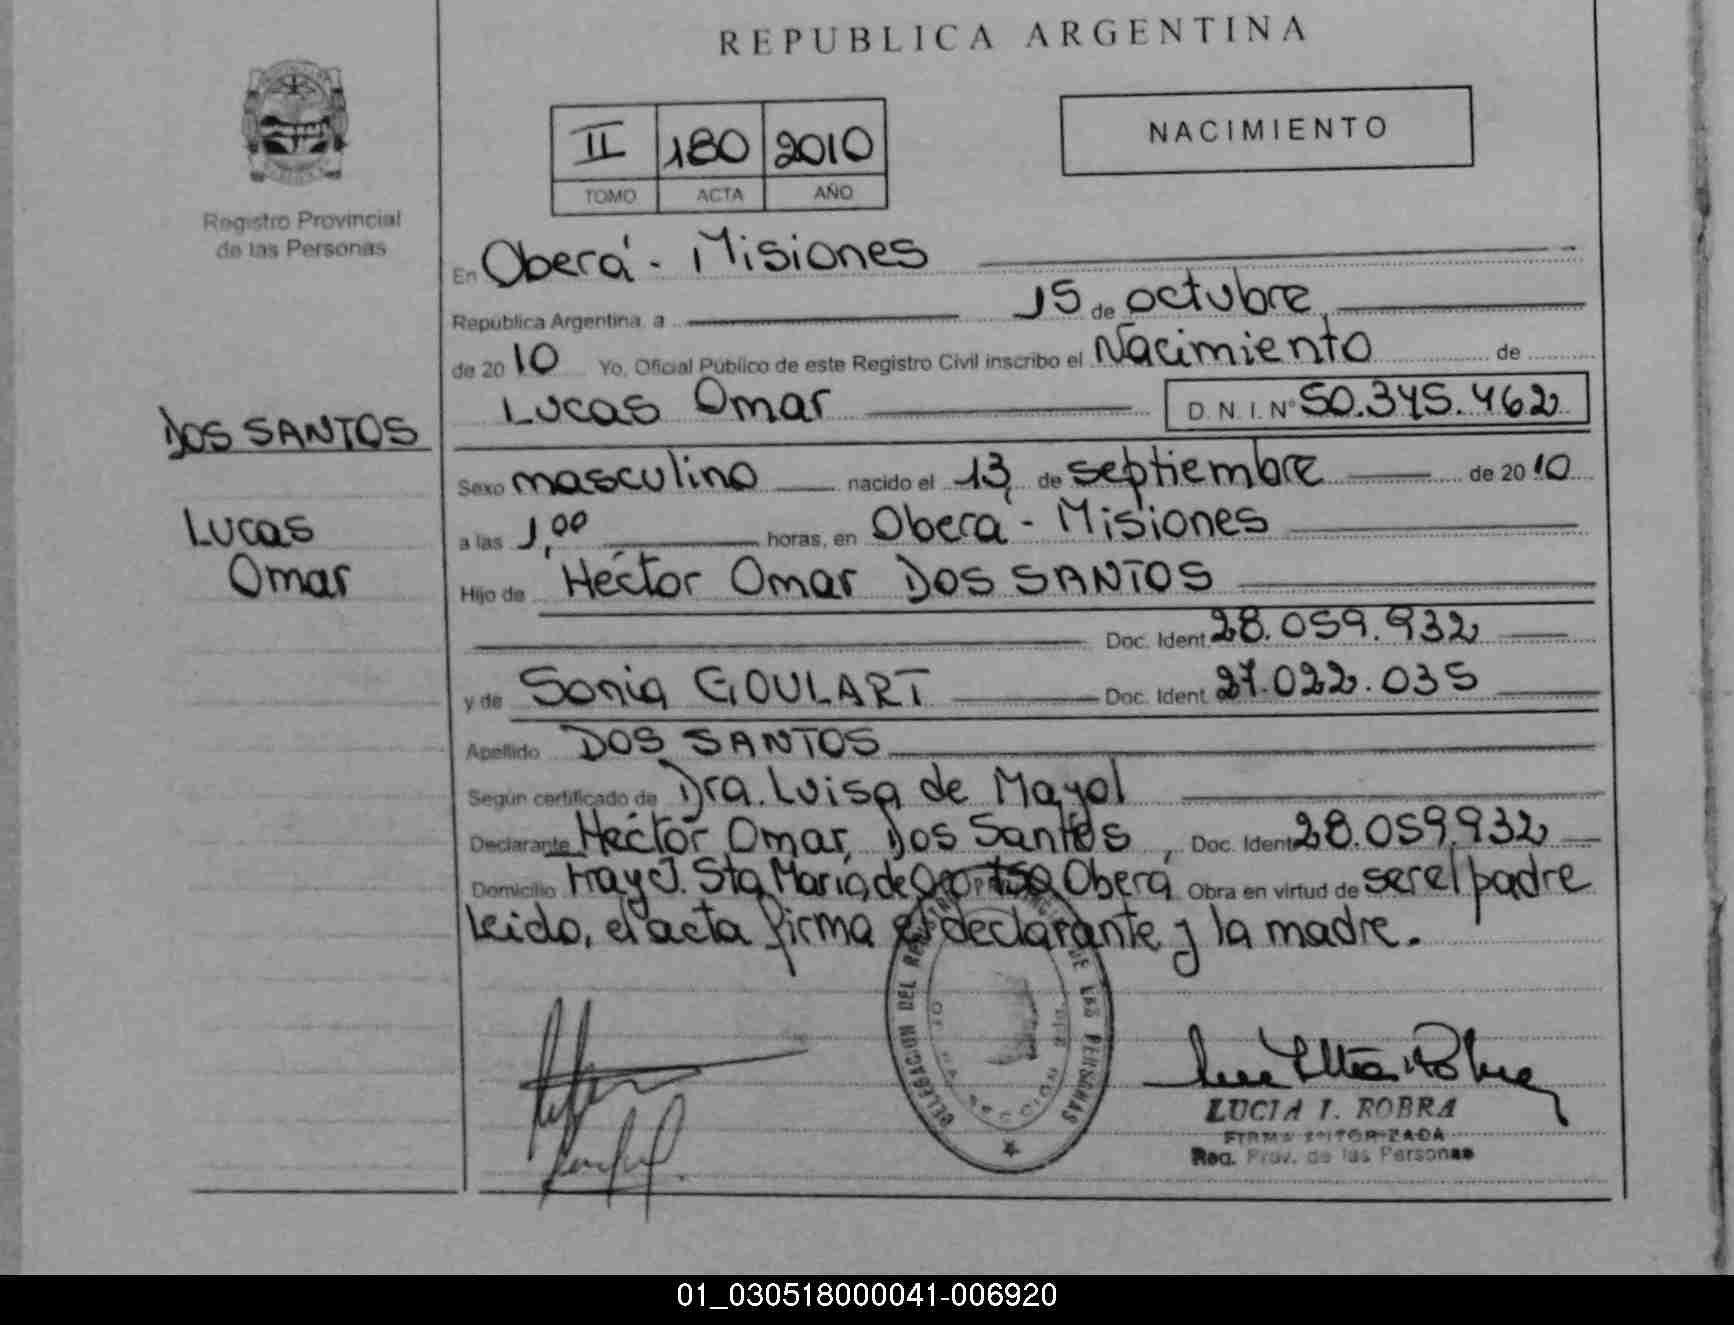 REPUBLICA ARGENTINA
II 180 2010
TOMO ACTA AÑO
NACIMIENTO
Registro Provincial
de las Personas
DOS SANTOS
Lucas
Omar
En Oberá - Misiones
República Argentina, a 15 de octubre
de 2010 Yo, Oficial Público de este Registro Civil inscribo el Nacimiento de
Lucas Omar D.N.I. N° 50.345.462
Sexo masculino nacido el 13 de septiembre de 2010
a las 1,00 horas, en Oberá - Misiones
Hijo de Héctor Omar DOS SANTOS
Doc. Ident. 28.059.932
y de Sonia GOULART Doc. Ident. 27.022.035
Apellido DOS SANTOS
Según certificado de Dra. Luisa de Mayol
Declarante Héctor Omar Dos Santos, Doc. Ident. 28.059.932
Domicilio Fray J. Sta María de Oro Oberá Obra en virtud de ser el padre
leido, el acta firma el declarante y la madre.
DELEGACION DEL REGISTRO PROVINCIAL DE LAS PERSONAS
LUCIA I. ROBRA
FIRMA AUTORIZADA
Reg. Prov. de las Personas
01_030518000041-006920